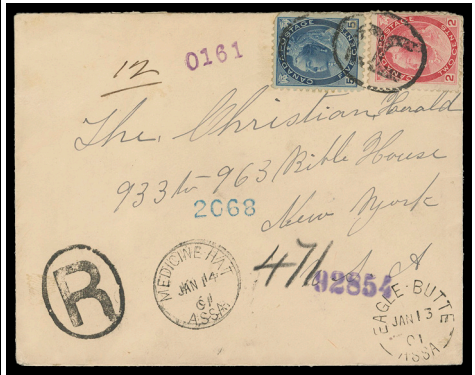 12
0161
CANADA POSTAGE
5 5
CANADA POSTAGE
2 2
The Christian Herald
933 to 963 Bible House
2068
New York
471
U S A
92854
R
MEDICINE HAT
JAN 14
01
ASSA.
EAGLE-BUTTE
JAN 13
01
ASSA